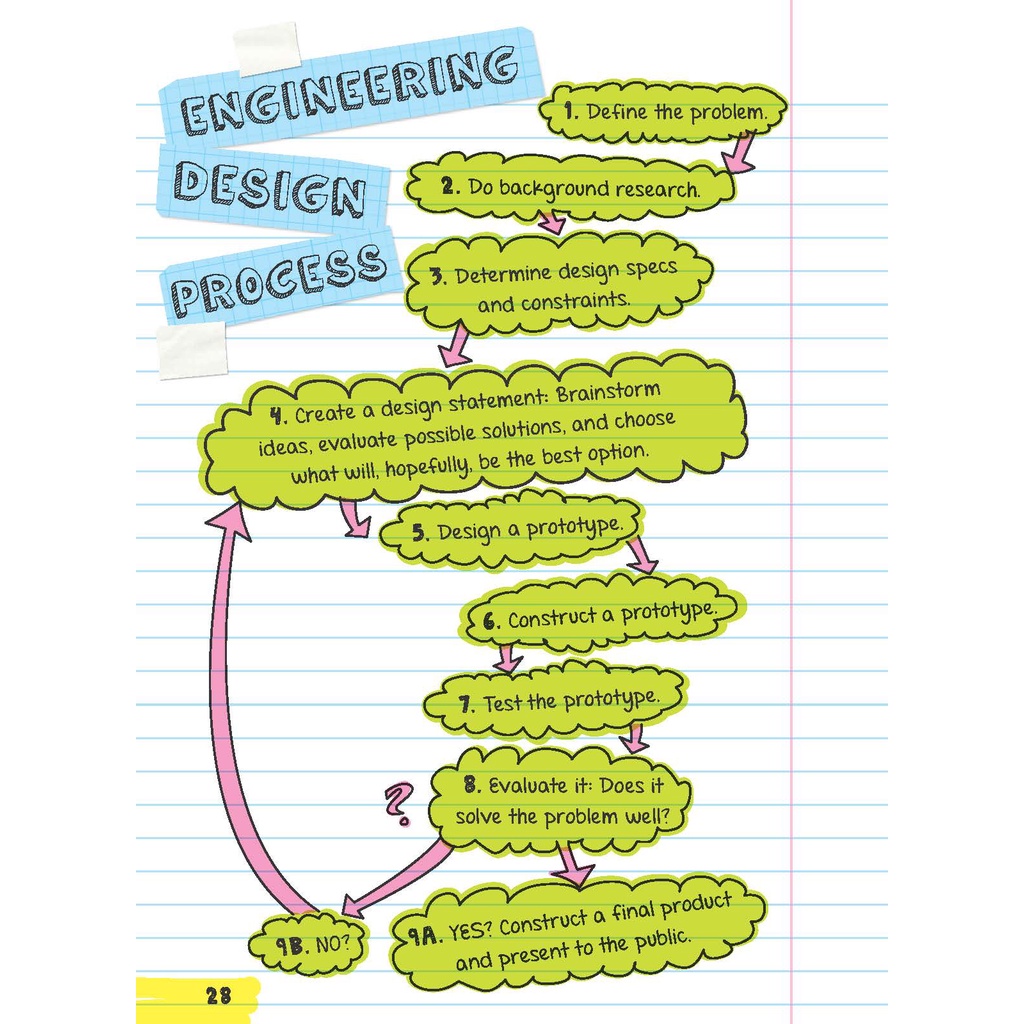 ENGINEERING
DESIGN
PROCESS
1. Define the problem.
2. Do background research.
3. Determine design specs
and constraints.
4. Create a design statement: Brainstorm
ideas, evaluate possible solutions, and choose
what will, hopefully, be the best option.
5. Design a prototype.
6. Construct a prototype.
7. Test the prototype.
8. Evaluate it: Does it
solve the problem well?
?
9A. YES? Construct a final product
and present to the public.
9B. NO?
28